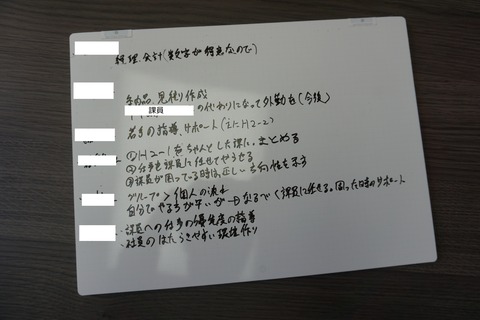 経理、会計(数字が得意なので)
製品 見積り作成
課員
の代わりになって外勤を(今後)
若手の指導、サポート(主にH2-2)
①H2-1をちゃんとした課にまとめる
②仕事を課員に任せてやらせる
③課員が困っている時は正しい方向性を示す
グループ>個人の流れ
自分でやる方が早いが一日なるべく課員に任せる。困った時のサポート
課員への仕事の優先度の指導
社員のはたらきやすい環境作り